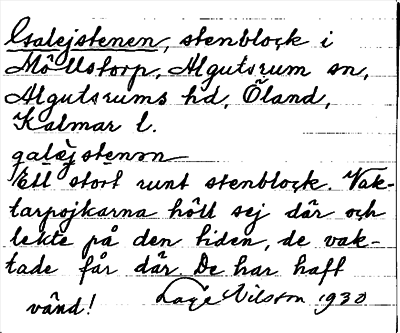 Galejstenen, stenblock i
Möllstorp, Algutsrum sn,
Algutsrums hd, Öland,
Kalmar l.
galèjstenən
Ett stort runt stenblock. Vak-
tarpojkarna höll sej där och
lekte på den tiden, de vak-
tade får där. De har haft
vänd!
Lage Nilsson 1930